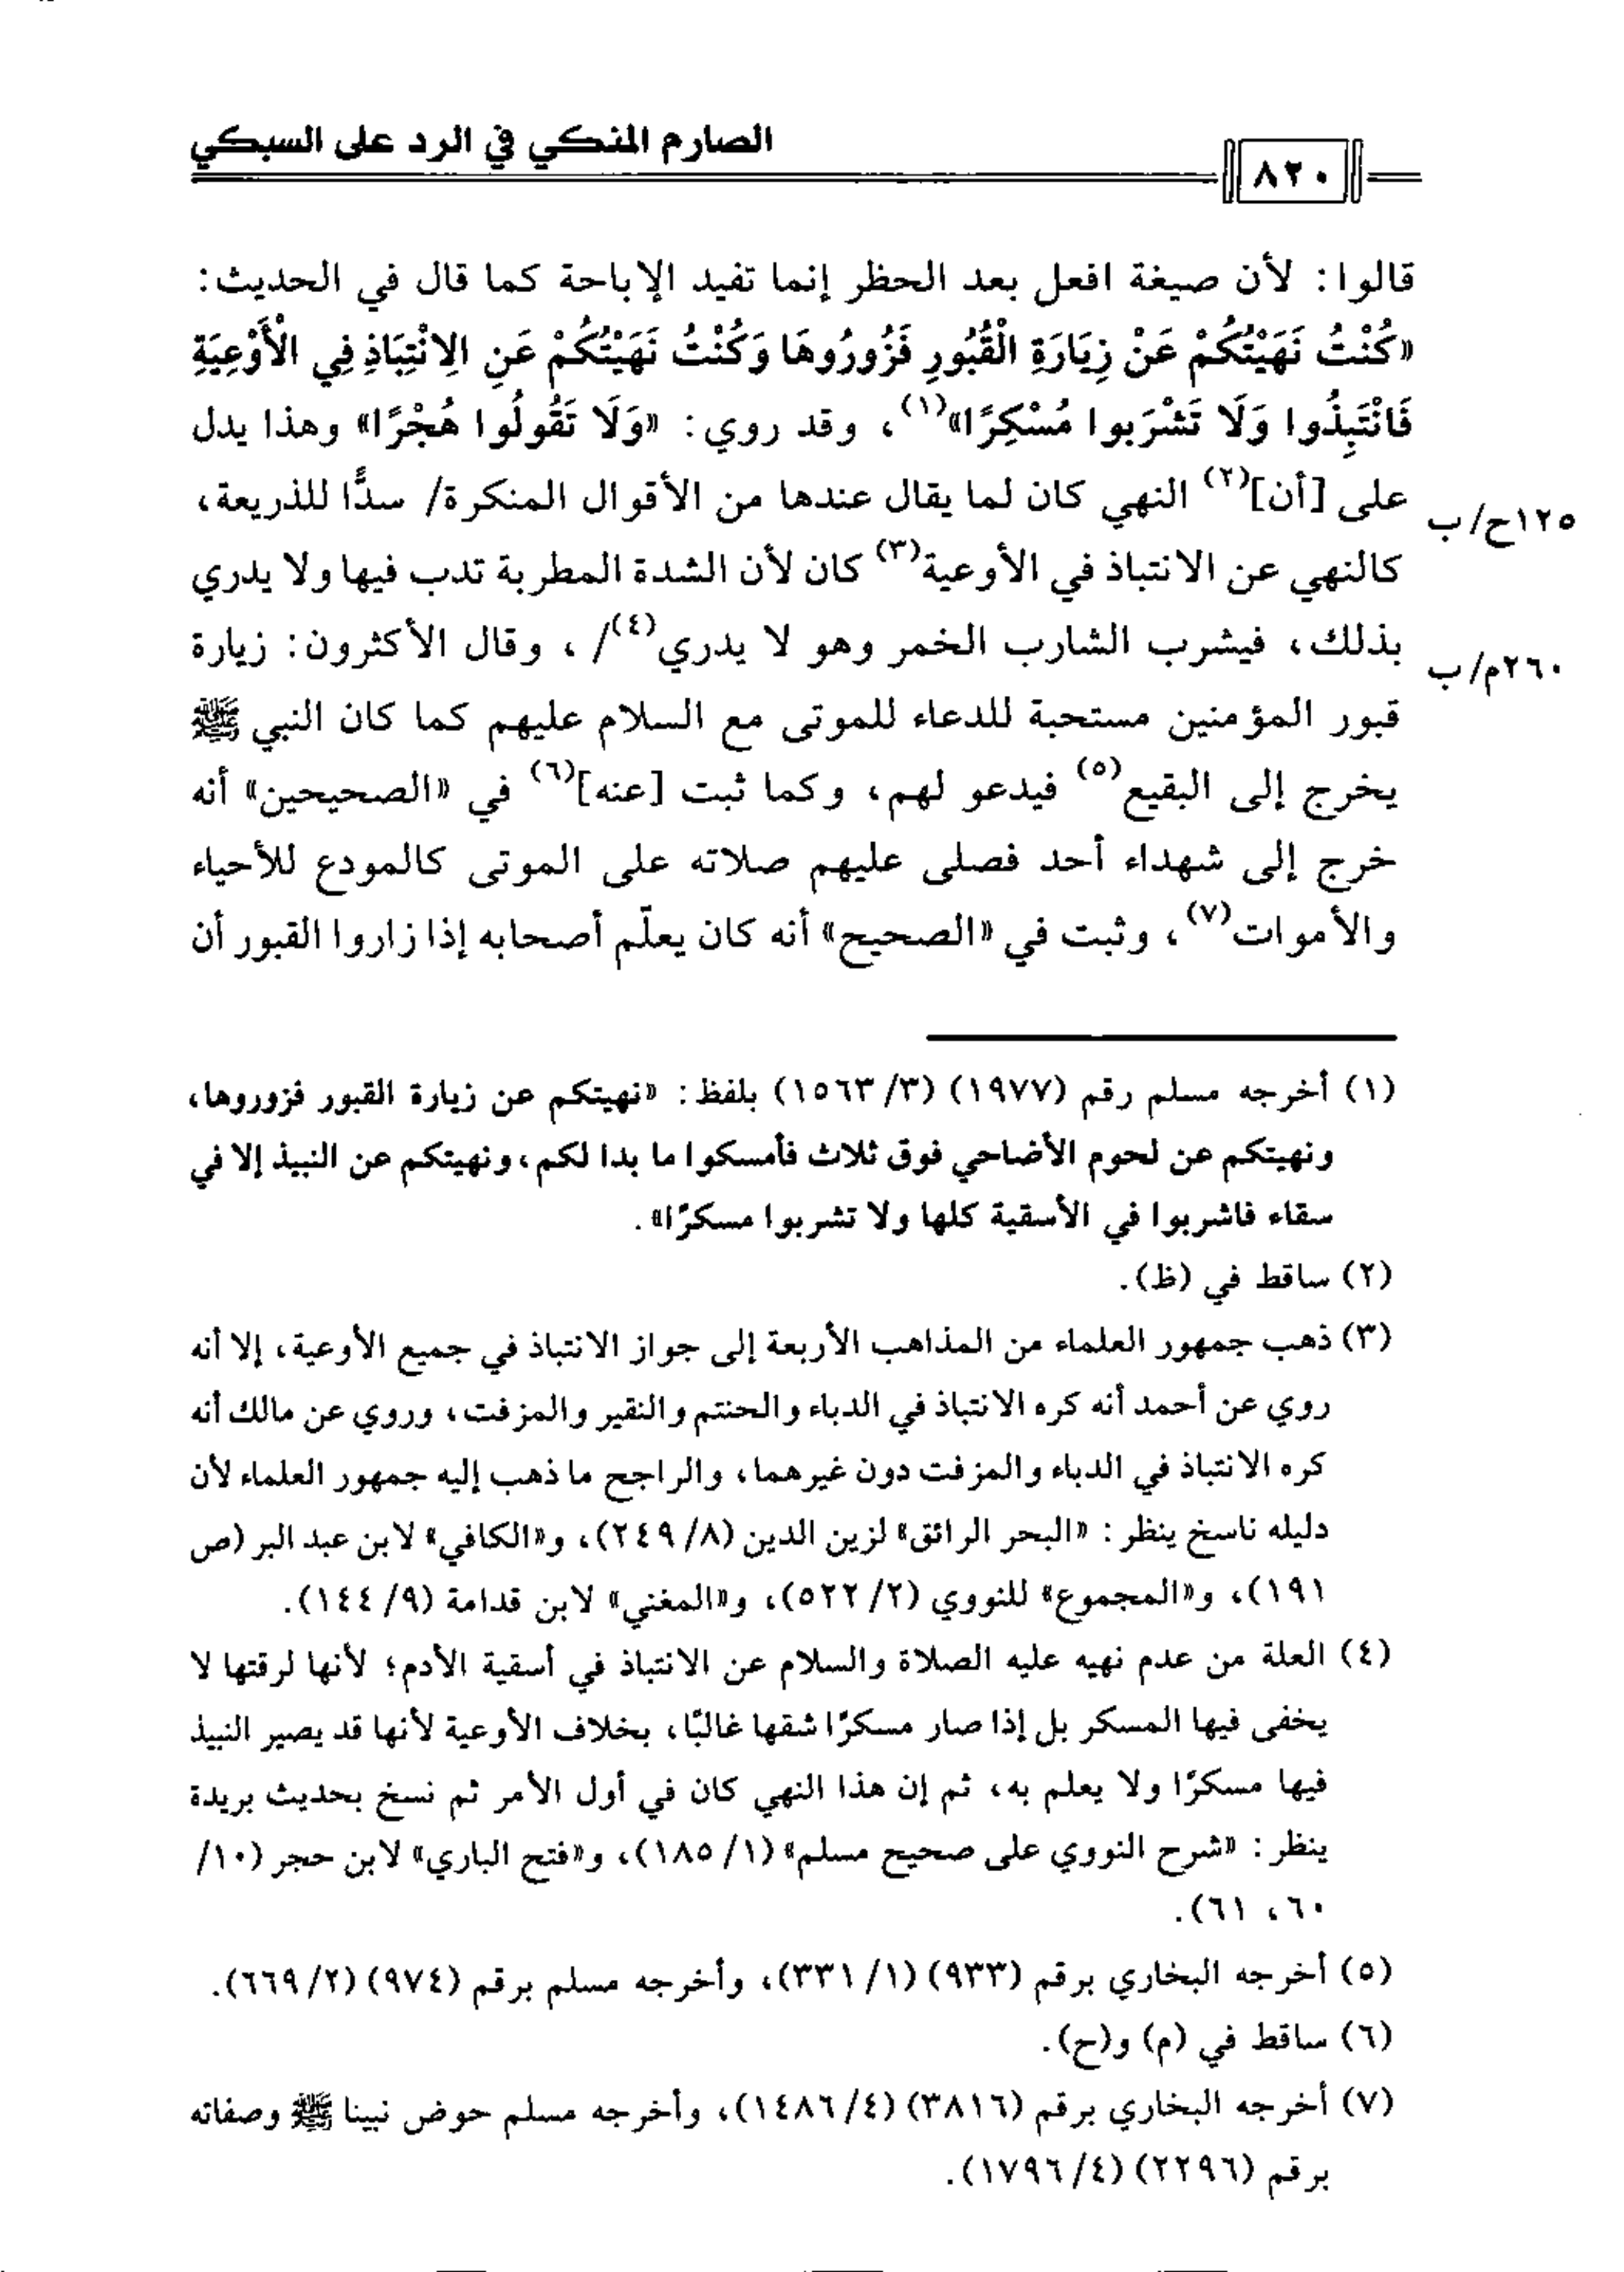 الصارم المنكي في الرد على السبكي
٨٢٠
قالوا: لأن صيغة افعل بعد الحظر إنما تفيد الإباحة كما قال في الحديث:
«كُنْتُ نَهَيْتُكُمْ عَنْ زِيَارَةِ الْقُبُورِ فَزُورُوهَا وَكُنْتُ نَهَيْتُكُمْ عَنِ الِانْتِبَاذِ فِي الْأَوْعِيَةِ
فَانْتَبِذُوا وَلَا تَشْرَبوا مُسْكِرًا»(١)، وقد روي: «وَلَا تَقُولُوا هُجْرًا» وهذا يدل
على [أن](٢) النهي كان لما يقال عندها من الأقوال المنكرة/ سدًّا للذريعة،
١٢٥ح/ب
كالنهي عن الانتباذ في الأوعية(٣) كان لأن الشدة المطربة تدب فيها ولا يدري
بذلك، فيشرب الشارب الخمر وهو لا يدري(٤)/، وقال الأكثرون: زيارة
٢٦٠م/ب
قبور المؤمنين مستحبة للدعاء للموتى مع السلام عليهم كما كان النبي ﷺ
يخرج إلى البقيع(٥) فيدعو لهم، وكما ثبت [عنه](٦) في «الصحيحين» أنه
خرج إلى شهداء أحد فصلى عليهم صلاته على الموتى كالمودع للأحياء
والأموات(٧)، وثبت في «الصحيح» أنه كان يعلّم أصحابه إذا زاروا القبور أن
(١) أخرجه مسلم رقم (١٩٧٧) (٣/ ١٥٦٣) بلفظ: «نهيتكم عن زيارة القبور فزوروها،
ونهيتكم عن لحوم الأضاحي فوق ثلاث فأمسكوا ما بدا لكم، ونهيتكم عن النبيذ إلا في
سقاء فاشربوا في الأسقية كلها ولا تشربوا مسكرًا».
(٢) ساقط في (ظ).
(٣) ذهب جمهور العلماء من المذاهب الأربعة إلى جواز الانتباذ في جميع الأوعية، إلا أنه
روي عن أحمد أنه كره الانتباذ في الدباء والحنتم والنقير والمزفت، وروي عن مالك أنه
كره الانتباذ في الدباء والمزفت دون غيرهما، والراجح ما ذهب إليه جمهور العلماء لأن
دليله ناسخ ينظر: «البحر الرائق» لزين الدين (٨/ ٢٤٩)، و«الكافي» لابن عبد البر (ص
١٩١)، و«المجموع» للنووي (٢/ ٥٢٢)، و«المغني» لابن قدامة (٩/ ١٤٤).
(٤) العلة من عدم نهيه عليه الصلاة والسلام عن الانتباذ في أسقية الأدم؛ لأنها لرقتها لا
يخفى فيها المسكر بل إذا صار مسكرًا شقها غالبًا، بخلاف الأوعية لأنها قد يصير النبيذ
فيها مسكرًا ولا يعلم به، ثم إن هذا النهي كان في أول الأمر ثم نسخ بحديث بريدة
ينظر: «شرح النووي على صحيح مسلم» (١/ ١٨٥)، و«فتح الباري» لابن حجر (١٠/
٦٠، ٦١).
(٥) أخرجه البخاري برقم (٩٣٣) (١/ ٣٣١)، وأخرجه مسلم برقم (٩٧٤) (٢/ ٦٦٩).
(٦) ساقط في (م) و(ح).
(٧) أخرجه البخاري برقم (٣٨١٦) (٤/ ١٤٨٦)، وأخرجه مسلم حوض نبينا ﷺ وصفاته
برقم (٢٢٩٦) (٤/ ١٧٩٦).